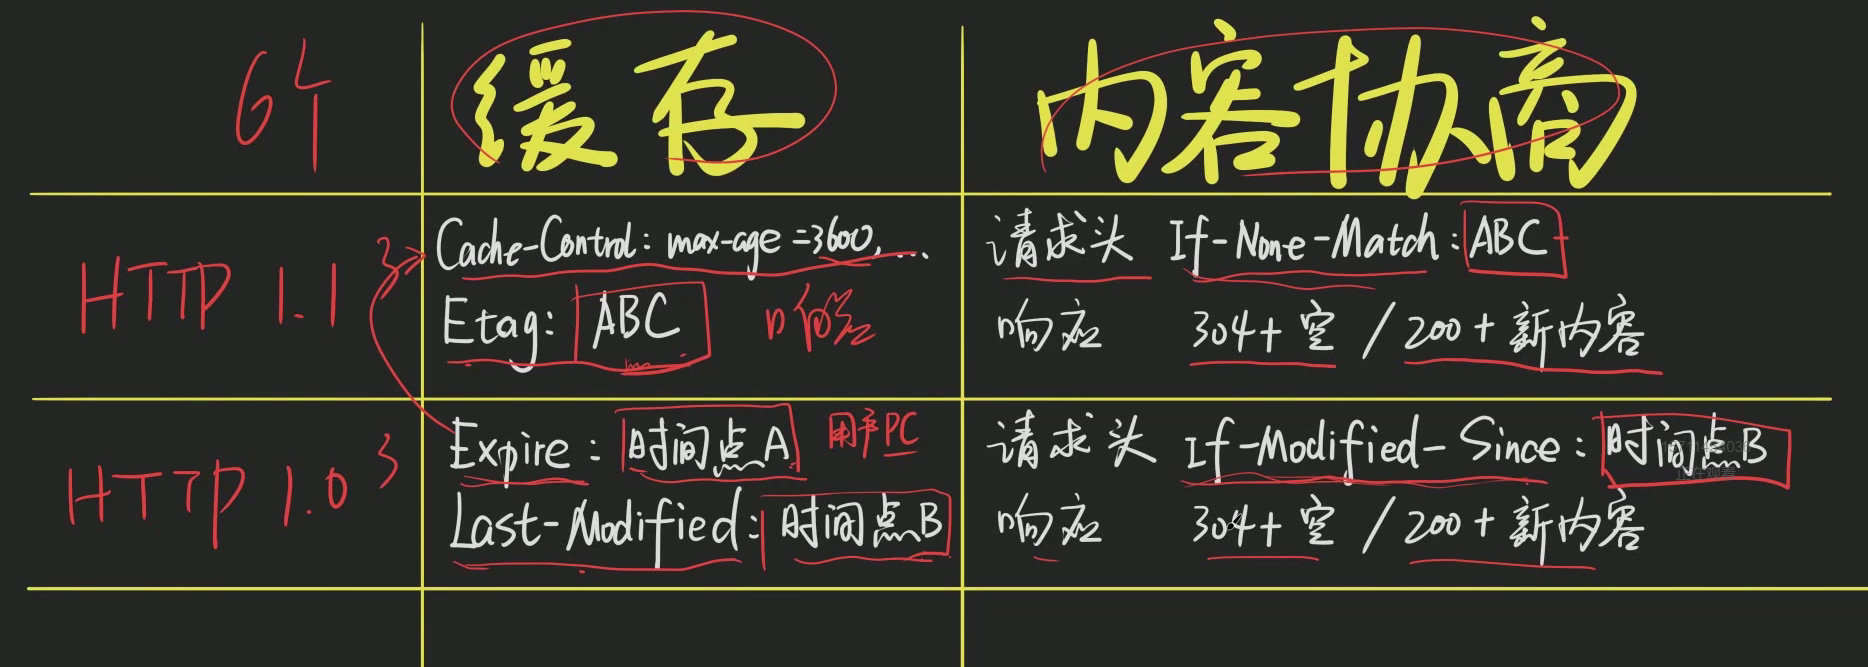 6个
缓存
内容协商
HTTP 1.1
3
Cache-Control: max-age=3600, ...
Etag: ABC
请求头 If-None-Match: ABC
响应 304+空 / 200+新内容
HTTP 1.0
3
Expire: 时间点A 用户PC
Last-Modified: 时间点B
请求头 If-Modified-Since: 时间点B
响应 304+空 / 200+新内容
正在观看